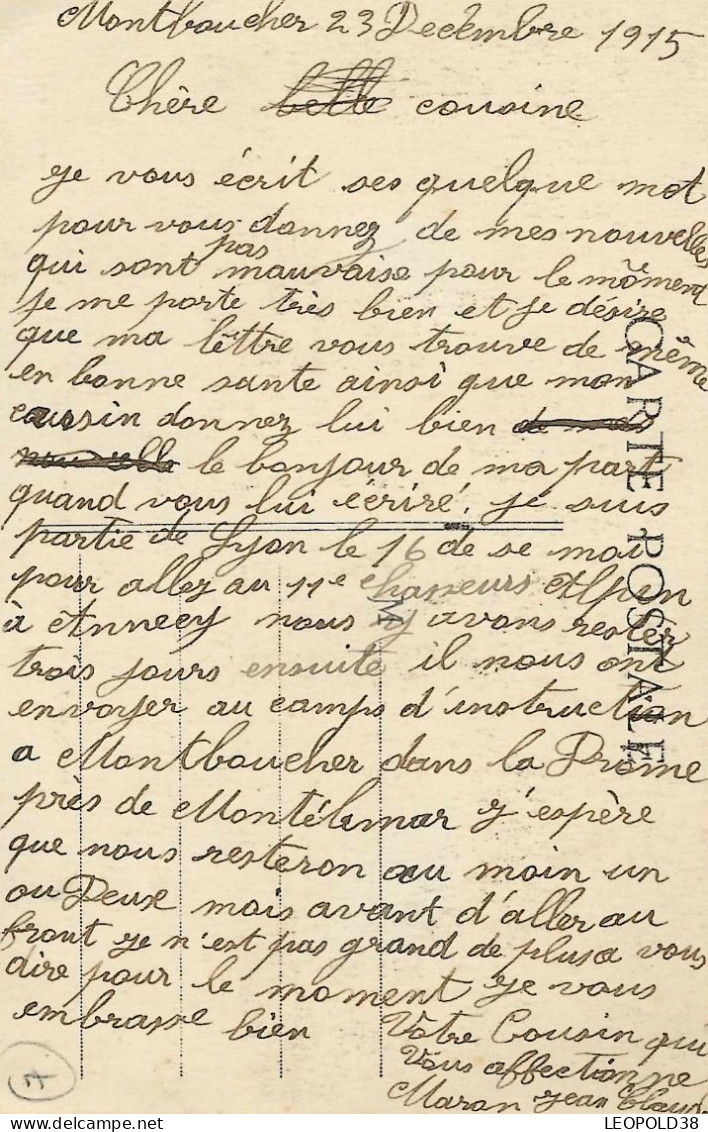 Montboucher 23 Decembre 1915
Chère belle cousine
je vous écrit ses quelque mot
pour vous donnez de mes nouvelles
qui sont pas mauvaise pour le moment
je me porte très bien et je désire
que ma lettre vous trouve de même
en bonne sante ainsi que mon
coussin donnez lui bien de mes
nouvelle le bonjour de ma part
quand vous lui écriré. je suis
partie de Lyon le 16 de se moi
pour allez au 11e chasseurs Alpin
à Annecy nous y avons rester
trois jours ensuite il nous ont
envoyer au camps d'instruction
a Montboucher dans la Drome
près de Montélimar j'espère
que nous resteron au moin un
ou Deux mois avant d'aller au
front je n'est pas grand de plus a vous
dire pour le moment je vous
embrasse bien Votre Cousin qui
Vous affectionne
Maron jean Claud.
CARTE POSTALE
M
7
LEOPOLD38